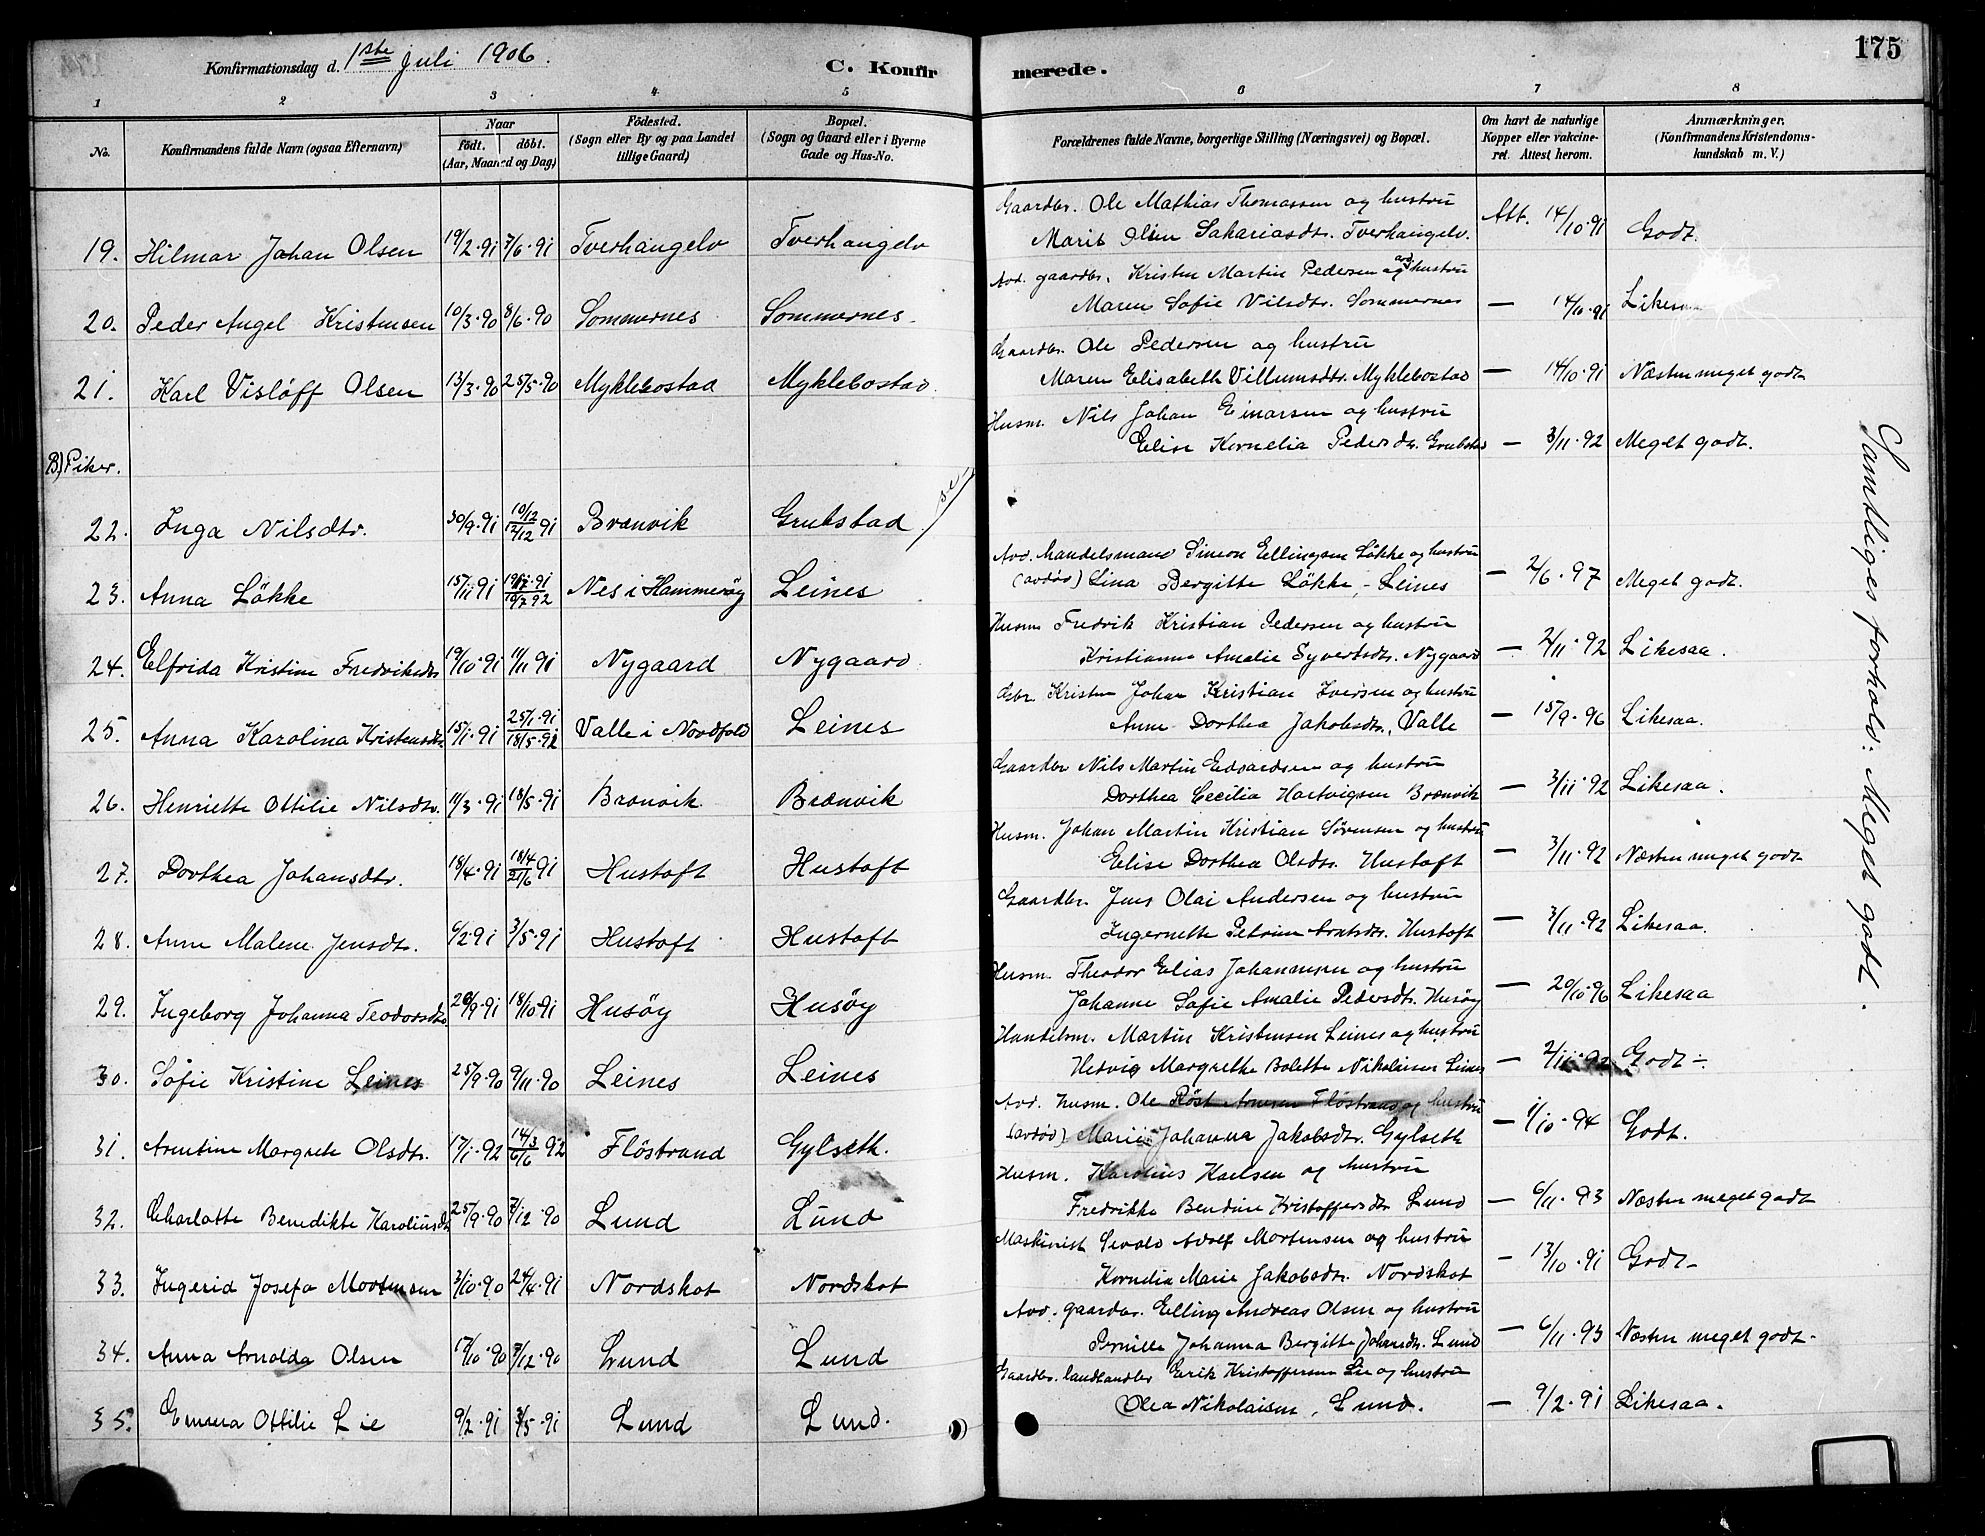 175
Konfirmationsdag d. 1ste Juli 1906.
C. Konfirmerede.
1 2 3 4 5 6 7 8
No.
Konfirmandens fulde Navn (ogsaa Efternavn)
Naar
født. døbt.
(Aar, Maaned og Dag)
Födested.
(Sogn eller By og paa Landet
tillige Gaard)
Bopæl.
(Sogn og Gaard eller i Byerne
Gade og Hus-No.
Forældrenes fulde Navne, borgerlige Stilling (Næringsvei) og Bopæl.
Om havt de naturlige
Kopper eller vakcine-
ret. Attest herom.
Anmærkninger.
(Konfirmandens Kristendoms-
kundskab m. V.)
Gaardbr. Ole Mathias Thomassen og hustru
19. Hilmar Johan Olsen 19/2.91 7/6.91 Tverhangelv Tverhangelv Marit Olsen Sakariasdtr. Tverhangelv. Att. 14/10.91 Godt.
Avd. gaardbr. Kristen Martin Pedersen og hustru
20. Peder Angel Kristensen 10/3.90 8/6.90 Sommernes Sommernes. Maren Sofie Nilsdtr. Sommernes — 14/10.91
Gaardbr. Ole Pedersen og hustru
21. Karl Visløff Olsen 13/3.90 25/5.90 Myklebostad Myklebostad. Maren Elisabeth Villumsdtr. Myklebostad — 14/10.91 Næsten meget godt
Husm. Nils Johan Einarsen og hustru
Elise Kornelia Pedersdtr. Grubstad — 3/11.92 Meget godt.
B) Piker.
22. Inga Nilsdtr. 30/9.91 10/12 12/12 91 Brænvik Grubstad
Avd. handelsmand Simeon Ellingsen Løkke og hustru
23. Anna Løkke 15/11 91 Nes i Hammerøy Leines (avdød) Lina Bergitte Løkke, Leines — 2/6.97 Meget godt.
Husm Fredrik Kristian Pedersen og hustru
24. Elfrida Kristine Fredriksdtr 19/10.91 11/11 91 Nygaard Nygaard Kristianna Amalie Syvertsdtr. Nygaard — 2/11.92 Likesaa.
Gbr. Kristen Johan Kristian Iversen og hustru
25. Anna Karolina Kristensdtr. 15/1.91 25/1.91 18/5.92 Valle i Nordfold Leines Anne Dorthea Jakobsdtr. Valle — 15/9.96 Likesaa.
Gaardbr Nils Martin Edvardsen og hustru
26. Henriette Ottilie Nilsdtr. 11/3.91 18/5.91 Brænvik Brænvik Dorthea Cecilia Hartvigsen Brænvik — 3/11.92 Likesaa.
Husm. Johan Martin Kristian Sørensen og hustru
27. Dorthea Johansdtr. 18/4.91 18/4 21/6 91 Hustoft Hustoft Elise Dorthea Olsdtr. Hustoft — 3/11.92 Næsten meget godt
Gaardbr. Jens Olai Andersen og hustru
28. Anne Malene Jensdtr. 6/2 91 3/5.91 Hustoft Hustoft Ingernette Petrine Arntsdtr. Hustoft — 3/11.92 Likesaa.
Husm. Theodor Elias Johannesen og hustru
29. Ingeborg Johanna Teodorsdtr 20/9.91 18/10.91 Husøy Husøy Johanne Sofie Amalie Pedersdtr. Husøy — 20/10.96 Likesaa
Handelsm. Martin Kristensen Leines og hustru
30. Sofie Kristine Leines 25/9.90 9/11.90 Leines Leines Hedvig Margrethe Bolette Nikolaisen Leines — 2/11.92 Godt ÷.
Avd. husm. Ole Røst Arnesen Fløstrand og hustru
31. Arntine Margrete Olsdtr. 17/1.92 14/3 6/6 92 Fløstrand Gylseth. (avdød) Marie Johanna Jakobsdtr. Gylseth — 1/10.94 Godt.
Husm. Karolius Karlsen og hustru
32. Charlotte Benedikte Karoliusdtr 25/9.90 7/12.90 Lund Lund Fredrikke Bendine Kristoffersdtr Lund — 6/11.93 Næsten meget godt
Maskinist Sevald Adolf Mortensen og hustru
33. Ingerid Josefa Mortensen 3/10.90 24/4.91 Nordskot Nordskot Kornelia Marie Jakobsdtr. Nordskot — 13/10.91 Godt -
Avd. gaardbr. Elling Andreas Olsen og hustru
34. Anna Arnolda Olsen 17/10.90 7/12.90 Lund Lund Pernille Johanna Bergitte Johansdtr. Lund — 6/11.93 Næsten meget godt -
Gaardbr. landhandler Erik Kristoffersen Lie og hustru
35. Emma Ottilie Lie 9/2.91 3/5.91 Lund Lund. Olea Nikolaisen, Lund. — 9/2.91 Likesaa.
Samtliges forhold: Meget godt.